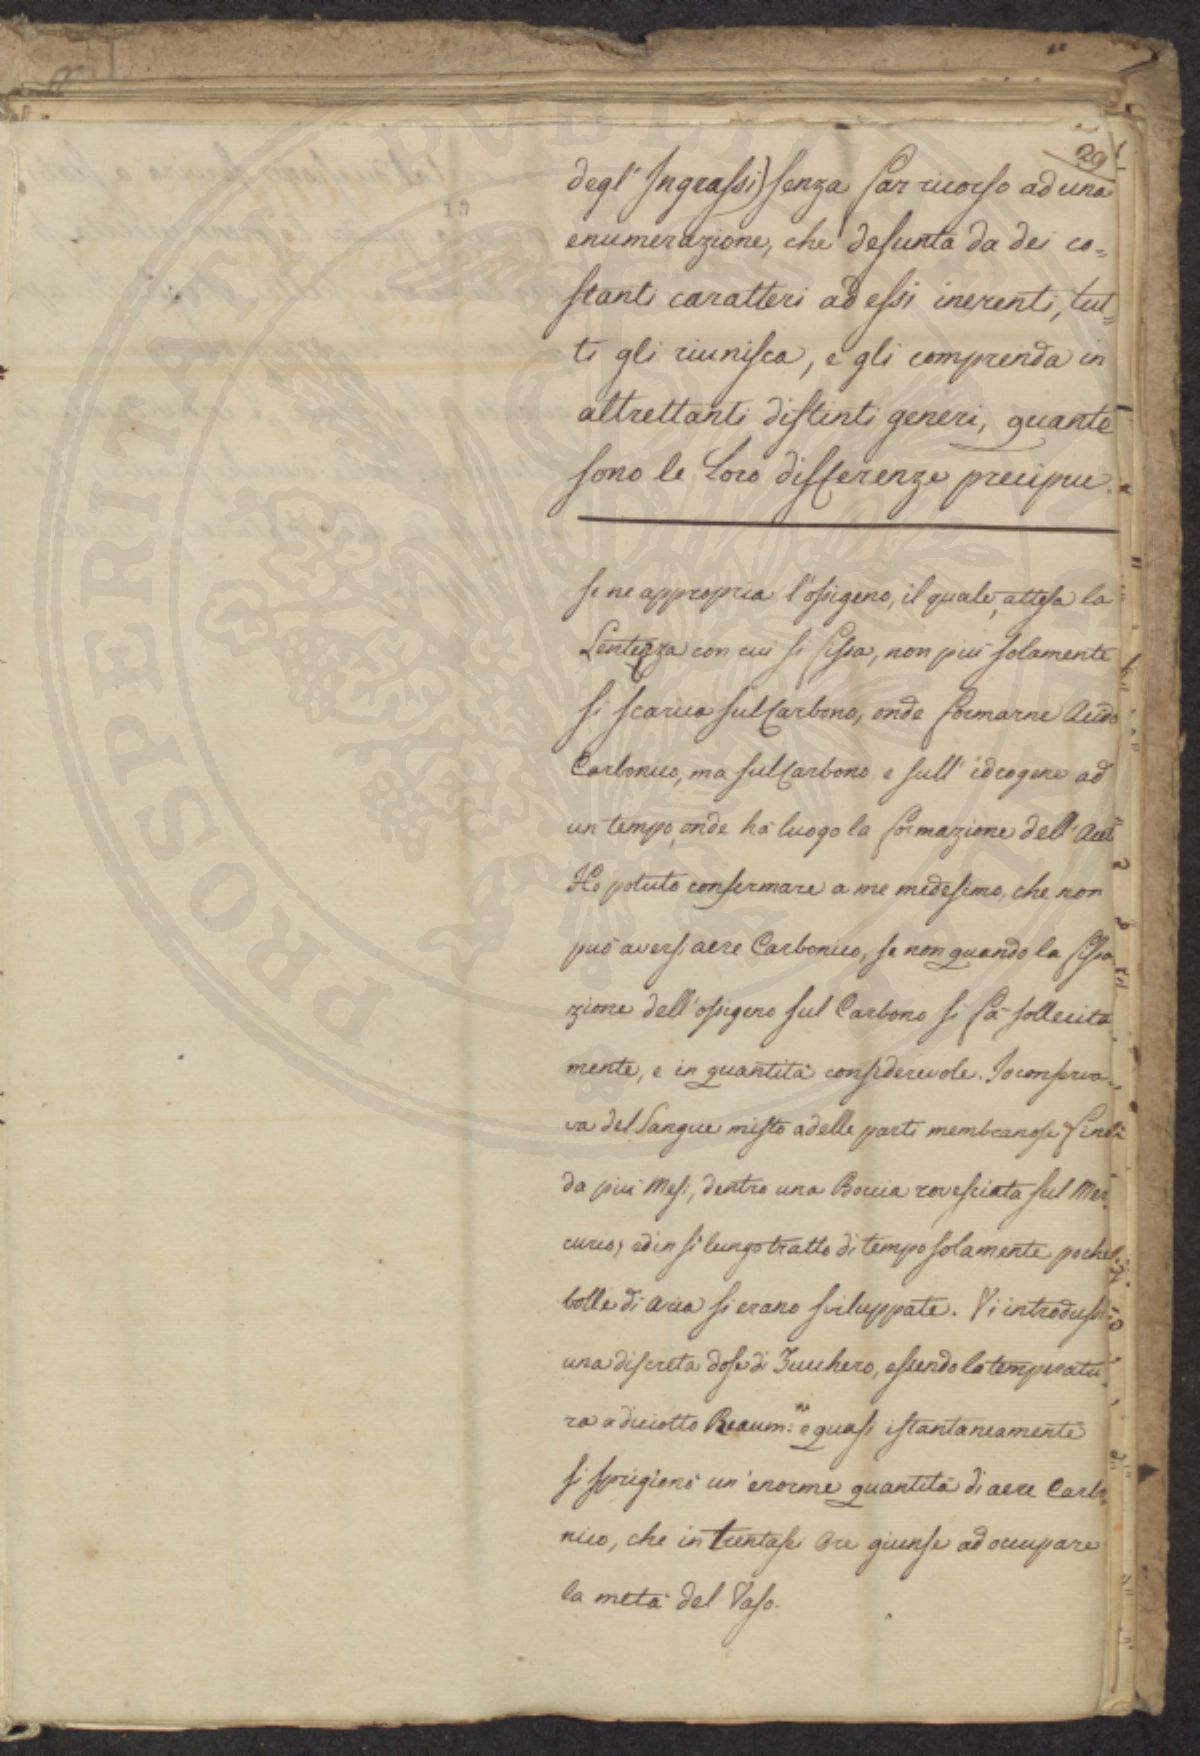 29
19
degl' Ingrassi) senza far ricorso ad una
enumerazione, che desunta da dei co=
stanti caratteri ad essi inerenti, tut=
ti gli riunisca, e gli comprenda in
altrettanti distinti generi, quante
sono le loro differenze precipue.
se ne appropria l'ossigeno, il quale, attesa la
Lentezza con cui si fissa, non più solamente
si scarica sul Carbono, onde formarne Acido
Carbonico, ma sul Carbono e sull' idrogene ad
un tempo, onde hà luogo la formazione dell'
Ho potuto confermare a me medesimo, che non
può aversi aere Carbonico, se non quando la fissa
zione dell'ossigeno sul Carbono si fà sollecita
mente, e in quantità considerevole. Io conserva
va del Sangue misto a delle parti membranose
da più Mesi, dentro una Boccia rovesciata sul Mer
curio, ed in sì lungo tratto di tempo solamente poche
bolle di Aria si erano sviluppate. Vi introdussi
una discreta dose di Zucchero, essendo la temperatu
ra a diciotto Reaum: e quasi istantaneamente
si sprigionò un' enorme quantità di aere Carbo
nico, che in trentasei Ore giunse ad occupare
la metà del Vaso.
PROSPERITATI PUBLICAE